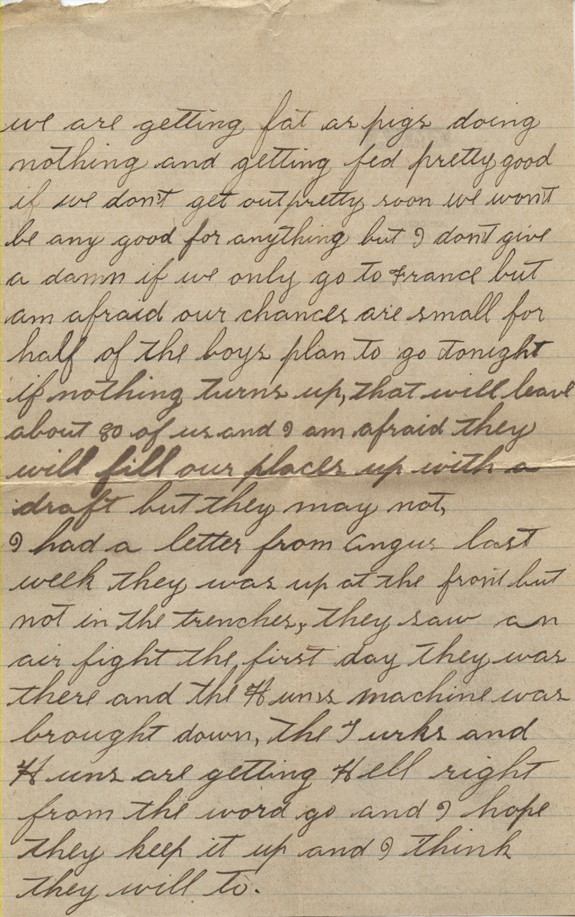 we are getting fat as pigs doing
nothing and getting fed pretty good
if we dont get out pretty soon we wont
be any good for anything but I dont give
a damn if we only go to France but
am afraid our chances are small for
half of the boys plan to go tonight
if nothing turns up, that will leave
about 80 of us and I am afraid they
will fill our places up with a
draft but they may not,
I had a letter from Angus last
week they was up at the front but
not in the trenches, they saw an
air fight the first day they was
there and the Huns machine was
brought down, the Turks and
Huns are getting Hell right
from the word go and I hope
they keep it up and I think
they will to.